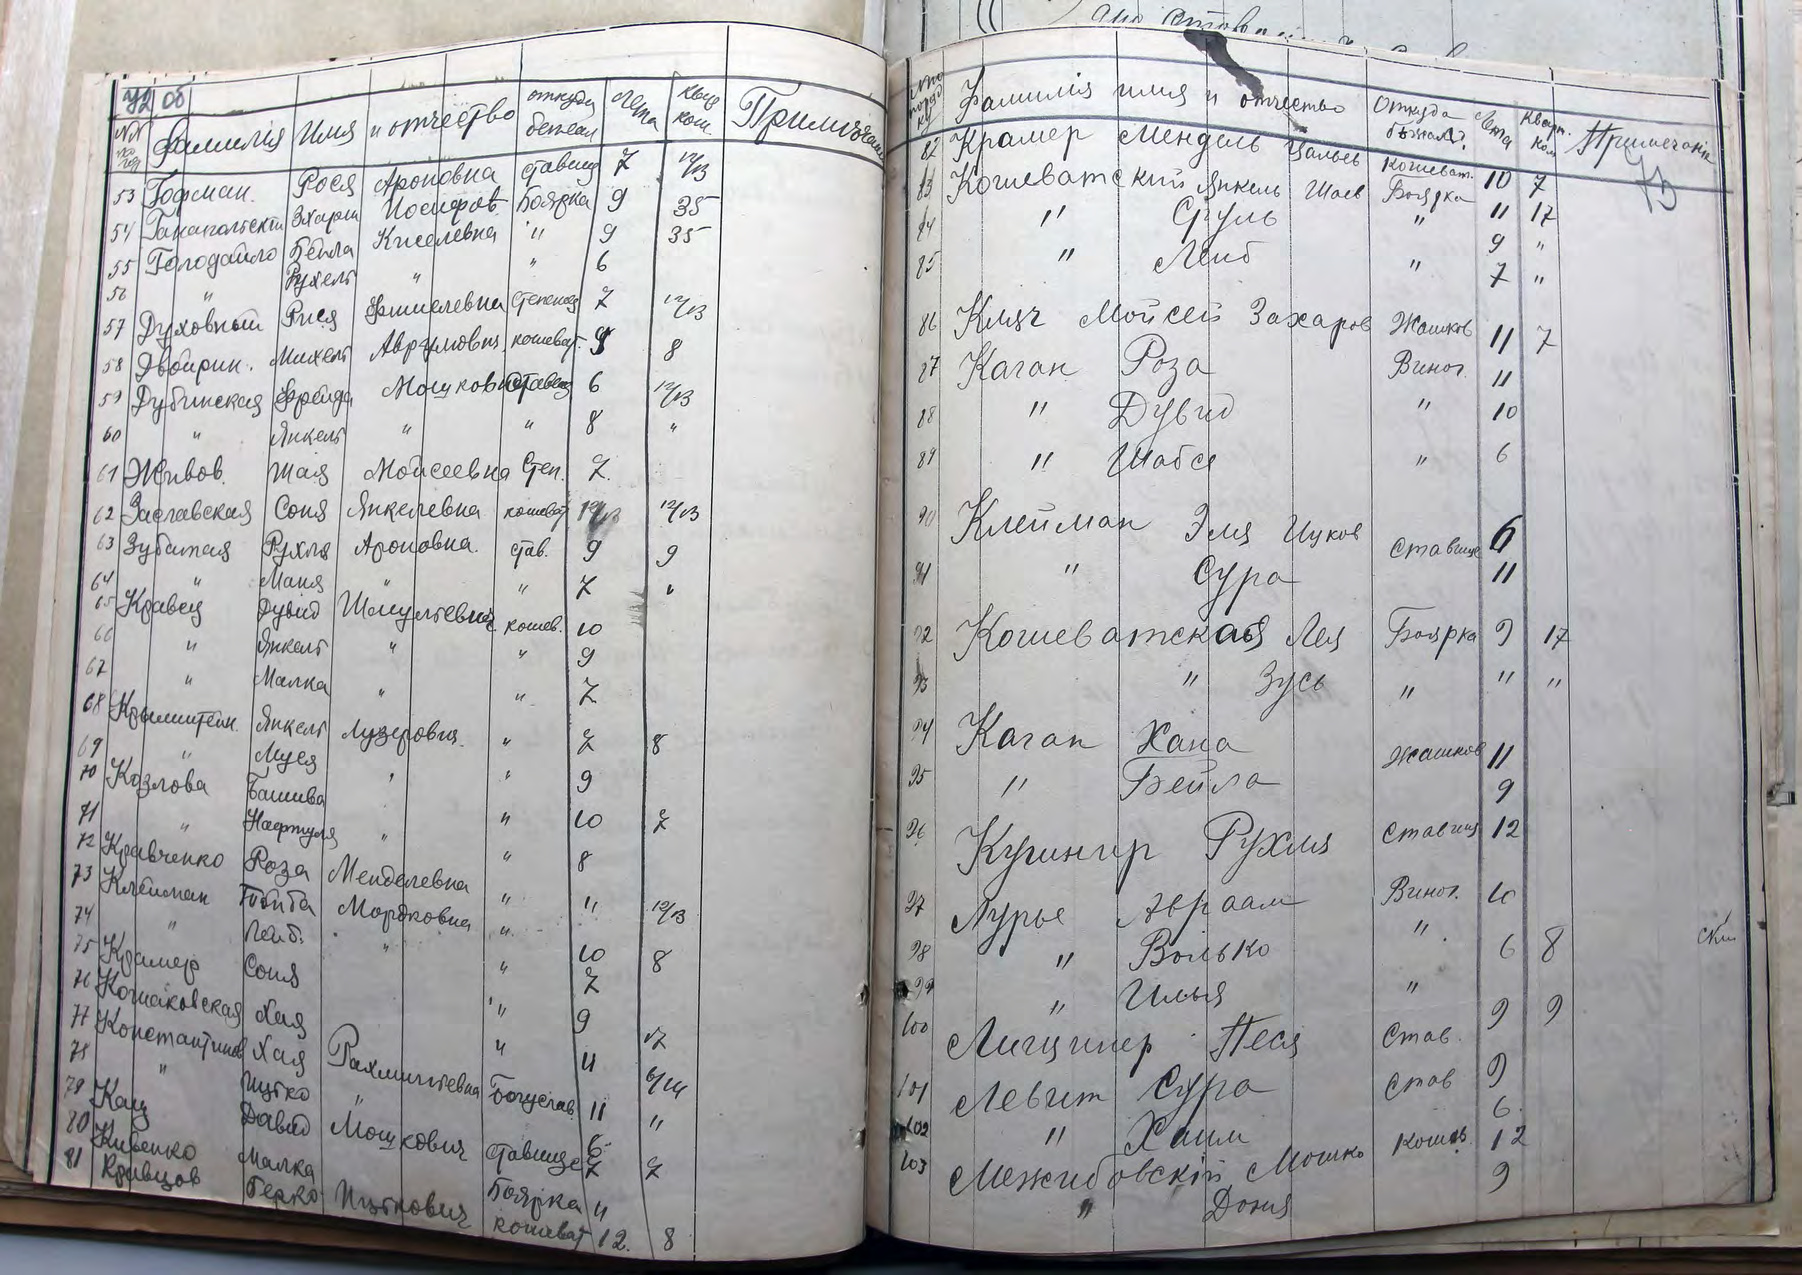 72 об
Фамилія Имя и отчество откуда бежал Лета Кв. ком. Примечан
53 Гофман. Рося Ароновна ставищ 7 12/13
54 Ганапольскій Захарій Иосифов. Боярка 9 35
55 Голодайло Бейла Киселевна " 9 35
56 " Рухель " " 6
57 Духовный Рися Фишелевна Степенец 7 12/13
58 Двойрин. Михель Аврумович кошеват. 9 8
59 Дубинская Фрейда Мошковна Ставищ 6 12/13
60 " Янкель " " 8 "
61 Живов. Шая Мойсеевна Степ. 7.
62 Заславская Соня Янкелевна кошеват 12/13
63 Зубатая Рухля Ароновна. став. 9 9
64 " Маня " " 7 "
65 Кравец Дувид Шмулевич кошев. 10
66 " Янкель " " 9
67 " Малка " " 7
68 Крымштейн. Янкель Лузерович. " 7 8
69 " Муся ' " 9
70 Козлова Башива " 10 7
71 " Нафтуля " " 8
72 Кравченко Роза Менделевна " " 12/13
73 Клейман Мордковна "
74 " Лейб. " " 10 8
75 Крамер Соня " 7
76 Хая " 9
77 Константинов Хая Рахмилевна " 11
78 " Ицько " Богуслав 11 "
79 Кац Давид Мошкович ставище 6
80 Кивенко Малка Боярка 11
81 Кравцов Герко Ицкович кошеват 12. 8
73
Фамилія имя и отчество Откуда бѣжал? Лета Кварт. ком Примечаніе
82 Крамер Мендель Цалев Кошеват. 10 7
83 Кошеватский Янкель Шаев Боярка 11 17
84 " Сруль " 9 "
85 " Лейб " 7 "
86 Кляч Мойсей Захаров Жашков 11 7
87 Каган Роза Виног. 11
88 " Дувид " 10
89 " Шабся " 6
90 Клейман Эля Ицков Ставище 6
91 " Сура 11
92 Кошеватская Лея Боярка 9 17
93 " Зусь " " "
94 Каган Хана Жашков 11
95 " Бейла 9
96 Рухля Ставищ 12
97 Лурье Авраам Виног. 10
98 " Волько ". 6 8
99 " Илья " 9 9
100 Песя Став. 9
101 Левит Сура Став 6.
102 " Хаим Кошев. 12
103 Межибовскій Мошко 9
" Доня